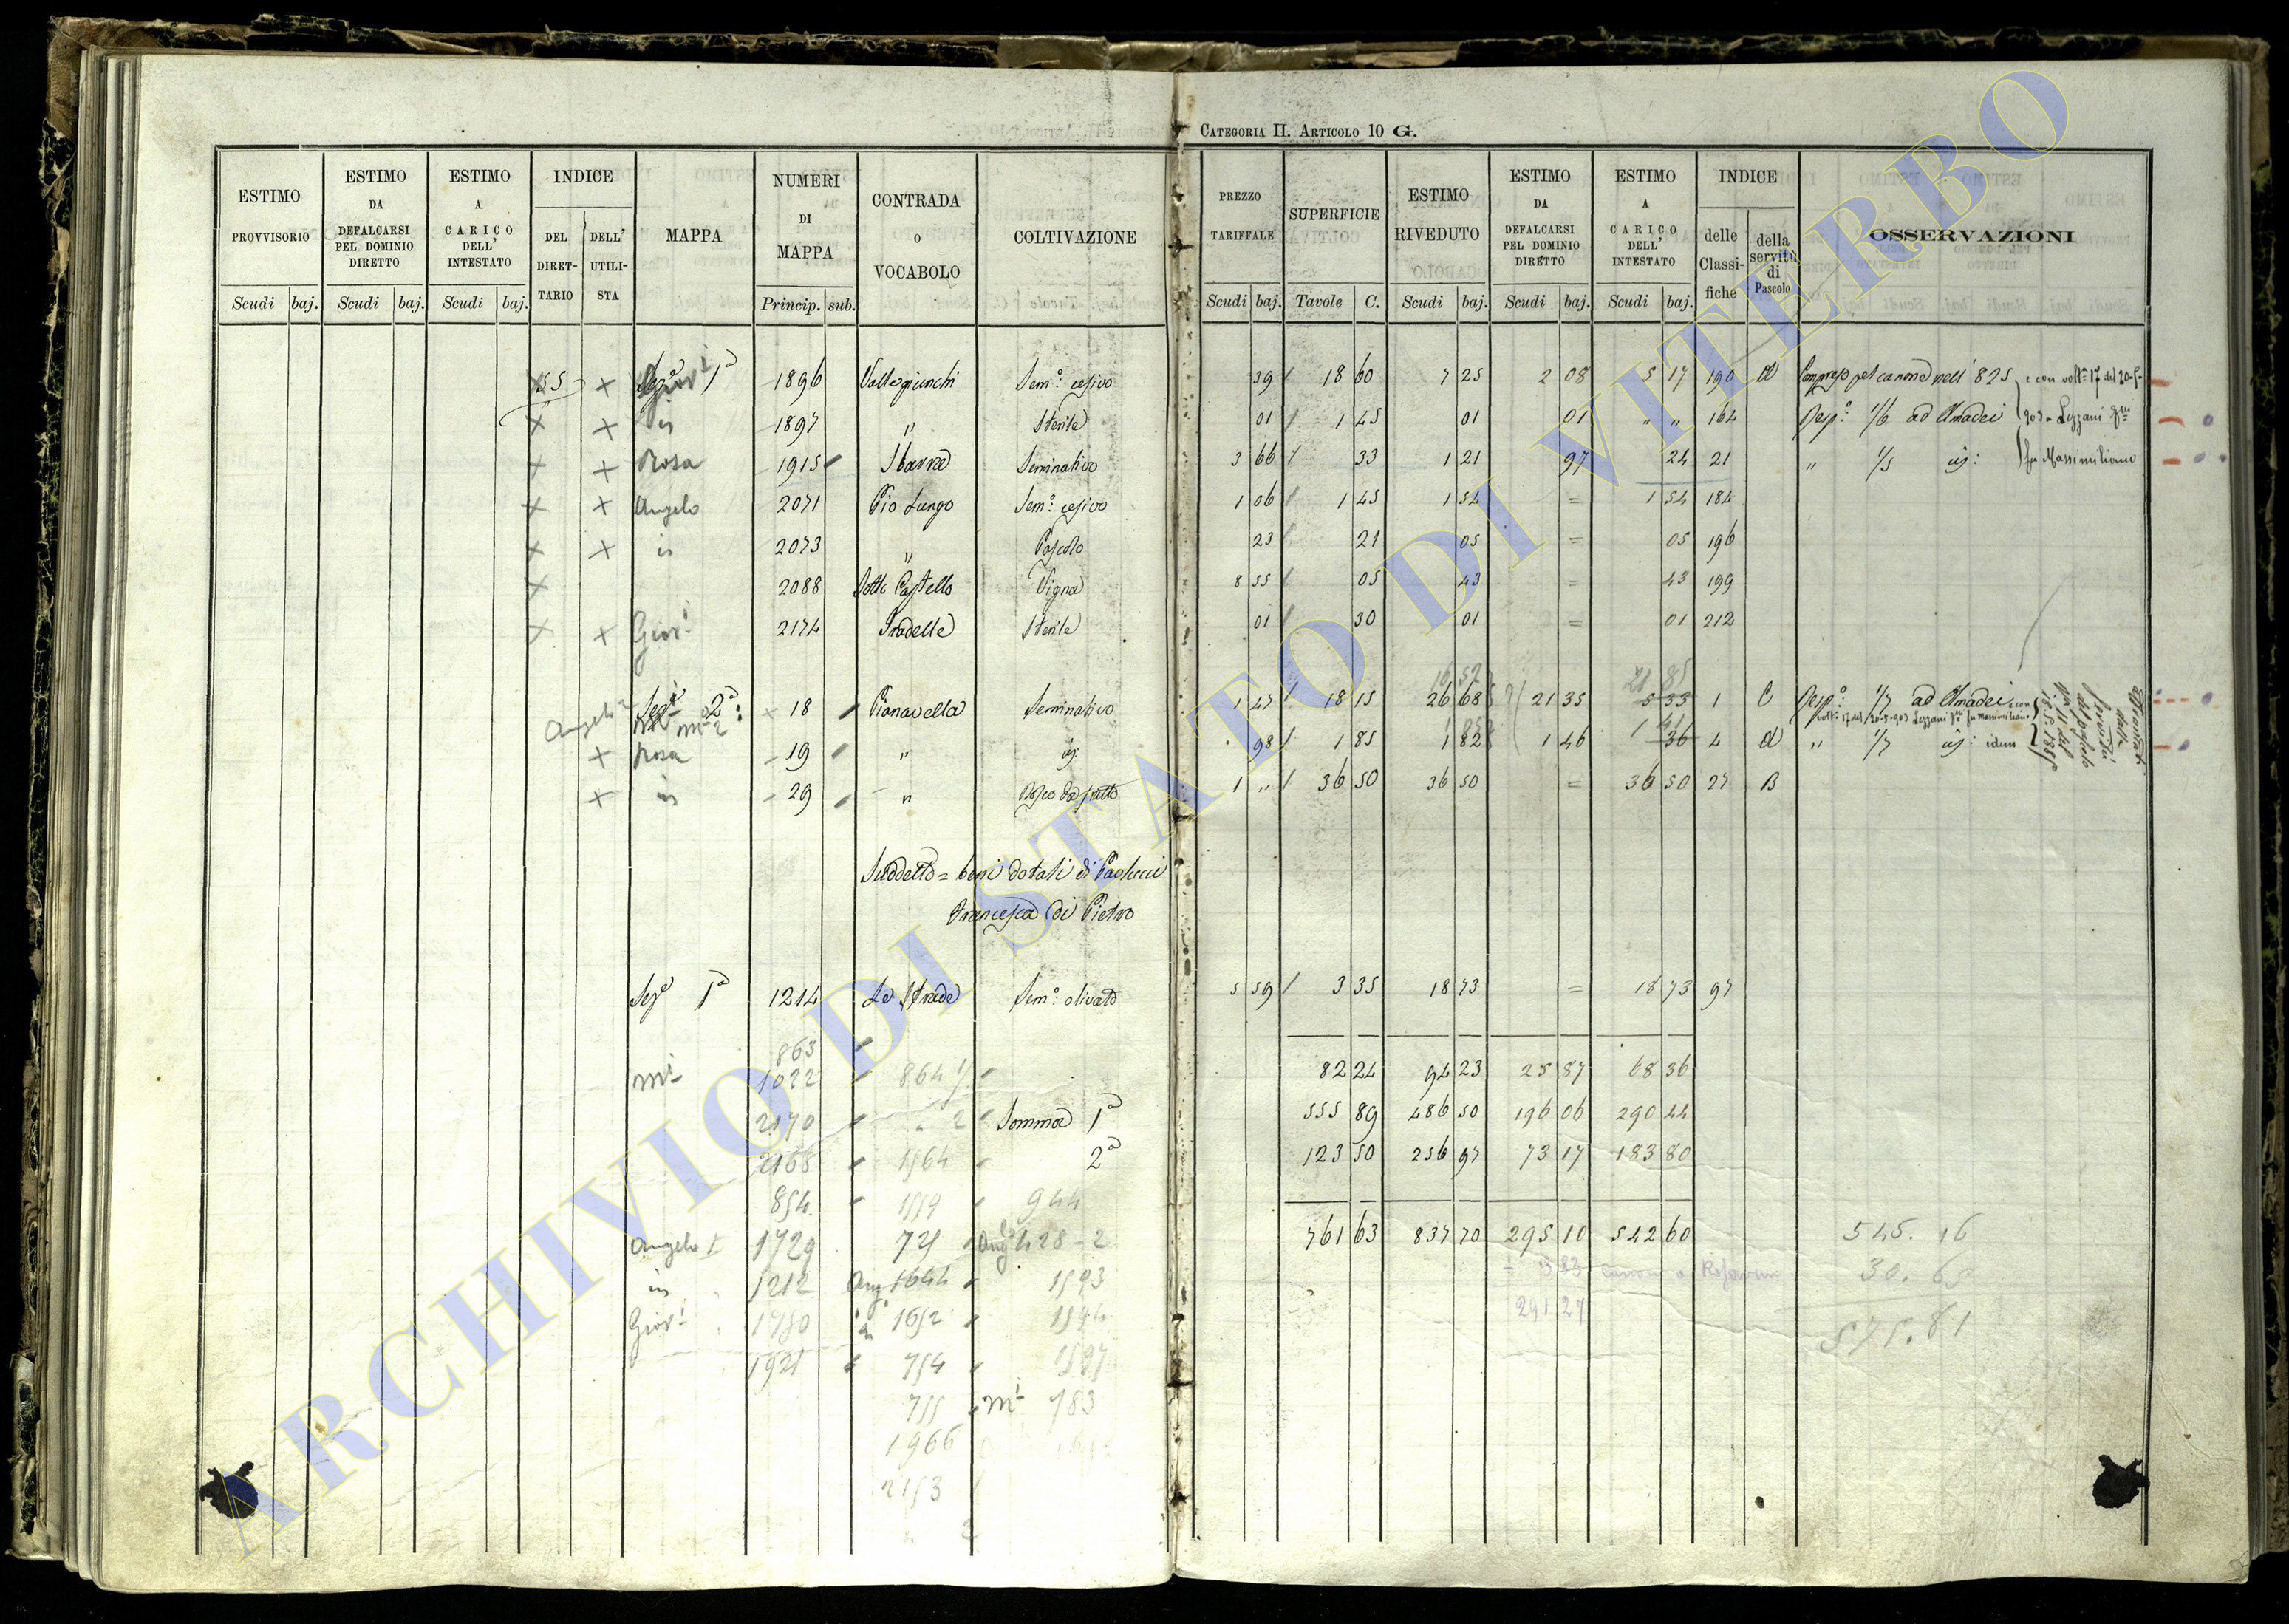 CATEGORIA II. ARTICOLO 10 G.
ESTIMO PROVVISORIO
ESTIMO DA DEFALCARSI PEL DOMINIO DIRETTO
ESTIMO A CARICO DELL' INTESTATO
INDICE
DEL DIRETTARIO
DELL' UTILISTA
MAPPA
NUMERI DI MAPPA
CONTRADA O VOCABOLO
COLTIVAZIONE
PREZZO TARIFFALE
SUPERFICIE
ESTIMO RIVEDUTO
ESTIMO DA DEFALCARSI PEL DOMINIO DIRETTO
ESTIMO A CARICO DELL' INTESTATO
INDICE
delle Classifiche
della servitù di Pascolo
OSSERVAZIONI
Scudi baj. Scudi baj. Scudi baj. Princip. sub. Scudi baj. Tavole C. Scudi baj. Scudi baj. Scudi baj.
55 x 1ª 1896 Valle giunchi Sem.º cesivo 39 18 60 7 25 2 08 5 17 190 d Compreso pel canone nell' 825
x x is 1897 " Sterile 01 1 45 01 01 " " 164 Resp.º 1/6 ad Amadei
x x Rosa 1915 Sbarra Seminativo 3 66 33 1 21 97 24 21 " 1/5 is:
e con volt.ª 17 del 20-5-
903 = Lezzani
fu Massimiliano
x x Angelo 2071 Pio Lungo Sem.º cesivo 1 06 1 45 1 54 = 1 54 184
x x is 2073 " Pascolo 23 21 05 = 05 196
x 2088 Sotto Castello Vigna 8 55 05 43 = 43 199
x x Giov.i 2174 Pradelle Sterile 01 30 01 = 01 212
Angelo Sez.e 2ª 18 Pianavella Seminativo 1 47 18 15 26 68 21 35 5 33 1 C Resp.º 1/7 ad Amadei con
volt.ª 17 del 20-5-903 Lezzani fu Massimiliano
x Rosa 19 " is 98 1 85 1 82 1 46 36 4 d " 1/7 is: idem
x is 29 " Bosco da frutto 1 " 36 50 36 50 = 36 50 27 B
Suddetto = beni dotali di Paolucci
Francesca di Pietro
Sez.e 1ª 1214 Le Strade Sem.º olivato 5 59 3 35 18 73 = 18 73 97
863
1022 864
82 24 94 23 25 87 68 36
2170 2 Somma 1ª 555 89 486 50 196 06 290 44
2168 1964 2ª 123 50 256 97 73 17 183 80
854 1959 944
Angelo 1729 721 428 - 2 761 63 837 70 295 10 542 60
545. 16
is 1212 Ang. 1644 1593
30. 65
291 27
Giov.i 1780 is 1652 1594
575. 81
1921 754 1597
755 783
1966
2153
2
ARCHIVIO DI STATO DI VITERBO